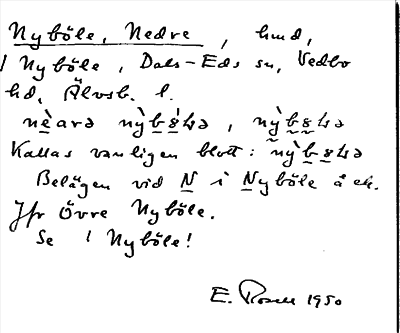 Nyböle, Nedre, hmd,
/ Nyböle, Dals-Eds sn, Vedbo
hd, Älvsb. l.
Kallas vanligen blott:
Belägen vid N i Nyböle å ek.
Jfr Övre Nyböle.
Se / Nyböle!
E. Rosell 1950